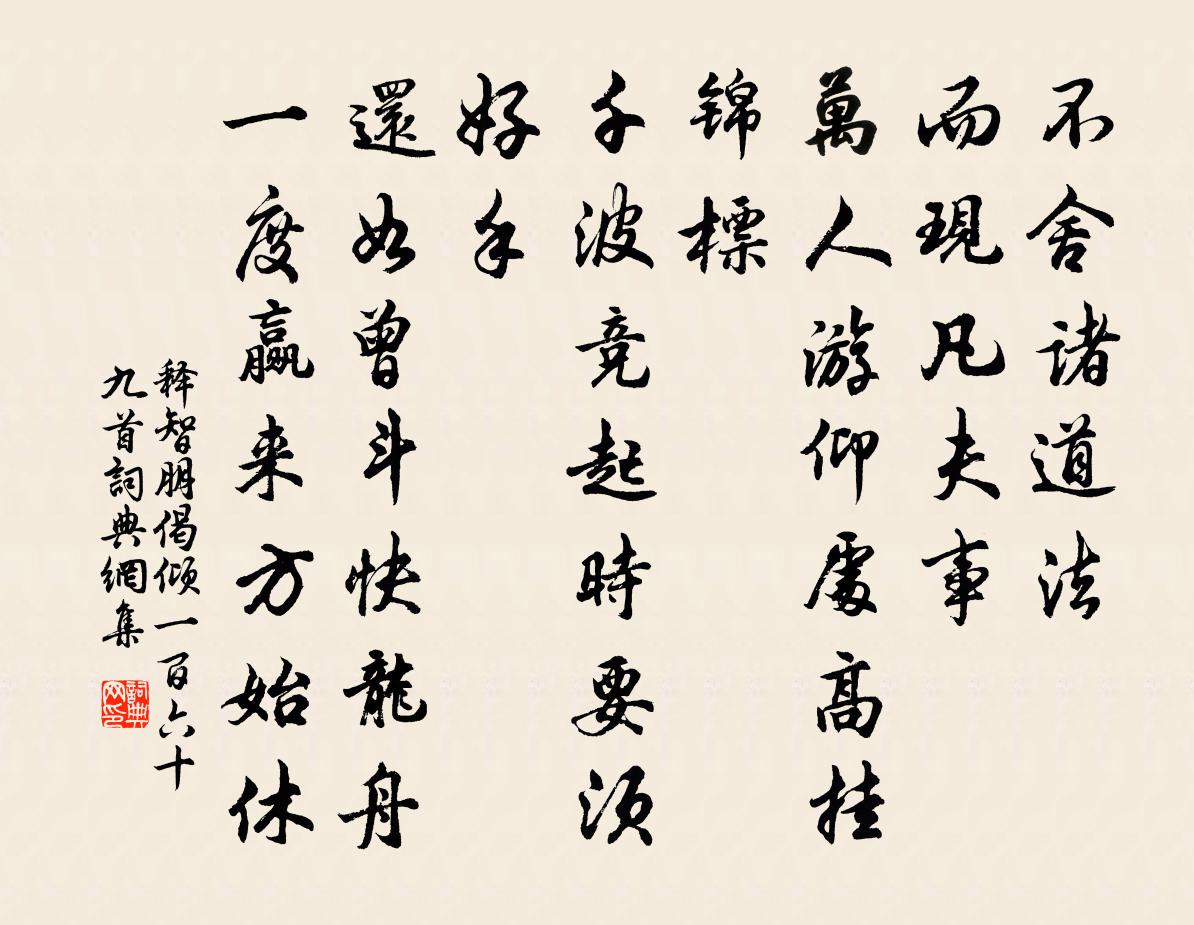 不舍诸道法
而現凡夫事
萬人游仰處高挂
锦標
千波竞起時要须
好手
還如曾斗快龍舟
一度赢来方始休
释智朋偈倾一百六十
九首詞典網集
詞典
网印